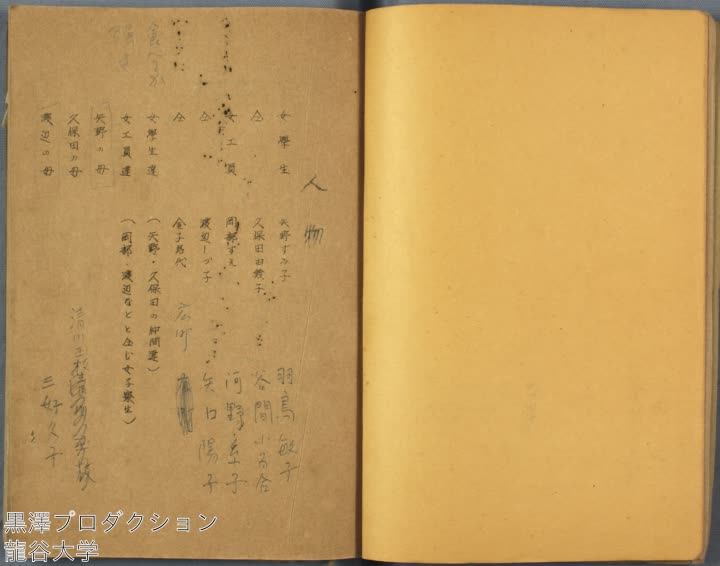 人物
女學生 矢野すみ子 羽鳥敏子
仝 久保田田鶴子 谷間小百合
女工員 岡部すえ 河野糸子
仝 渡辺しづ子 矢口陽子
仝 金子昌代 広町
女學生達 (矢野・久保田の仲間達)
女工員達 (岡部・渡辺などと仝じ女子寮生)
矢野の母
久保田の母 清川玉枝
渡辺の母 三好久子
黒澤プロダクション
龍谷大学